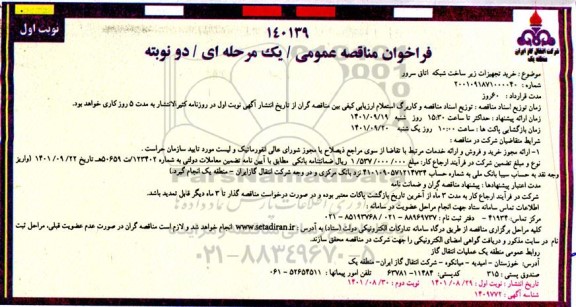 نوبت اول
۱۴۰۱۳۹
شرکت انتقال گاز ایران
منطقه یک
فراخوان مناقصه عمومی / یک مرحله ای / دو نوبته
موضوع : خرید تجهیزات زیر ساخت شبکه اتاق سرور
شماره : ۲۰۰۱۰۹۱۸۷۱۰۰۰۰۴۰
مدت قرارداد : ۶۰ روز
زمان توزیع اسناد مناقصه : توزیع اسناد مناقصه و کاربرگ استعلام ارزیابی کیفی بین مناقصه گران از تاریخ انتشار آگهی نوبت اول در روزنامه کثیرالانتشار به مدت ۵ روز کاری خواهد بود.
زمان ارائه پیشنهاد : حداکثر تا ساعت ۱۵:۳۰ روز شنبه ۱۴۰۱/۰۹/۱۹
زمان بازگشایی پاکت ها : ساعت ۱۰:۰۰ روز یک شنبه ۱۴۰۱/۰۹/۲۰
شرایط متقاضیان شرکت در مناقصه :
۱- ارائه مجوز خرید و فروش و ارائه خدمات مرتبط با تقاضا از سوی مراجع ذیصلاح یا مجوز شورای عالی انفورماتیک و لیست مورد تایید سازمان حراست .
نوع و مبلغ تضمین شرکت در فرآیند ارجاع کار: مبلغ ۱/۵۳۷/۰۰۰/۰۰۰ ریال ضمانتنامه بانکی مطابق با آیین نامه تضمین معاملات دولتی به شماره ۱۲۳۴۰۲/ت۵۰۶۵۹هـ تاریخ ۱۴۰۱/۰۹/۲۲ (واریز
وجه نقد به حساب سیبا بانک ملی به شماره حساب ۴۰۰۱۰۹۰۵۷۱۲۱۴۷۳۴ نزد بانک مرکزی و در وجه شرکت انتقال گاز ایران - منطقه یک انجام گیرد)
مدت اعتبار پیشنهادها : پیشنهاد مناقصه گران و ضمانت نامه
شرکت در فرآیند ارجاع کار به مدت ۳ ماه از آخرین تاریخ بازگشت پاکات معتبر بوده و در صورت درخواست مناقصه گذار تا ۳ ماه دیگر قابل تمدید باشد.
اطلاعات تماس سامانه ستاد جهت انجام مراحل عضویت در سامانه :
مرکز تماس: ۴۱۹۳۴ - دفتر ثبت نام : ۸۸۹۶۹۷۳۷ - ۰۲۱ / ۸۵۱۹۳۷۶۸ - ۰۲۱
کلیه مراحل برگزاری مناقصه از طریق درگاه سامانه تدارکات الکترونیکی دولت (ستاد) به آدرس www.setadiran.ir انجام خواهد شد و لازم است مناقصه گران در صورت عدم عضویت قبلی، مراحل ثبت
نام در سایت مذکور و دریافت گواهی امضای الکترونیکی را جهت شرکت در مناقصه محقق سازند.
روابط عمومی منطقه یک عملیات انتقال گاز
آدرس: خوزستان - امیدیه - میانکوه - شرکت انتقال گاز ایران- منطقه یک
صندوق پستی : ۳۱۵ کدپستی: ۱۱۴۸۴ - ۶۳۷۸۱ تلفن امور پیمانها : ۵۲۶۵۴۵۱۱ - ۰۶۱
تاریخ انتشار : نوبت اول : ۱۴۰۱/۰۸/۲۹ نوبت دوم : ۱۴۰۱/۰۸/۳۰
شناسه آگهی : ۱۴۰۹۷۷۲
۰۲۱-۸۸۳۴۹۶۷۰